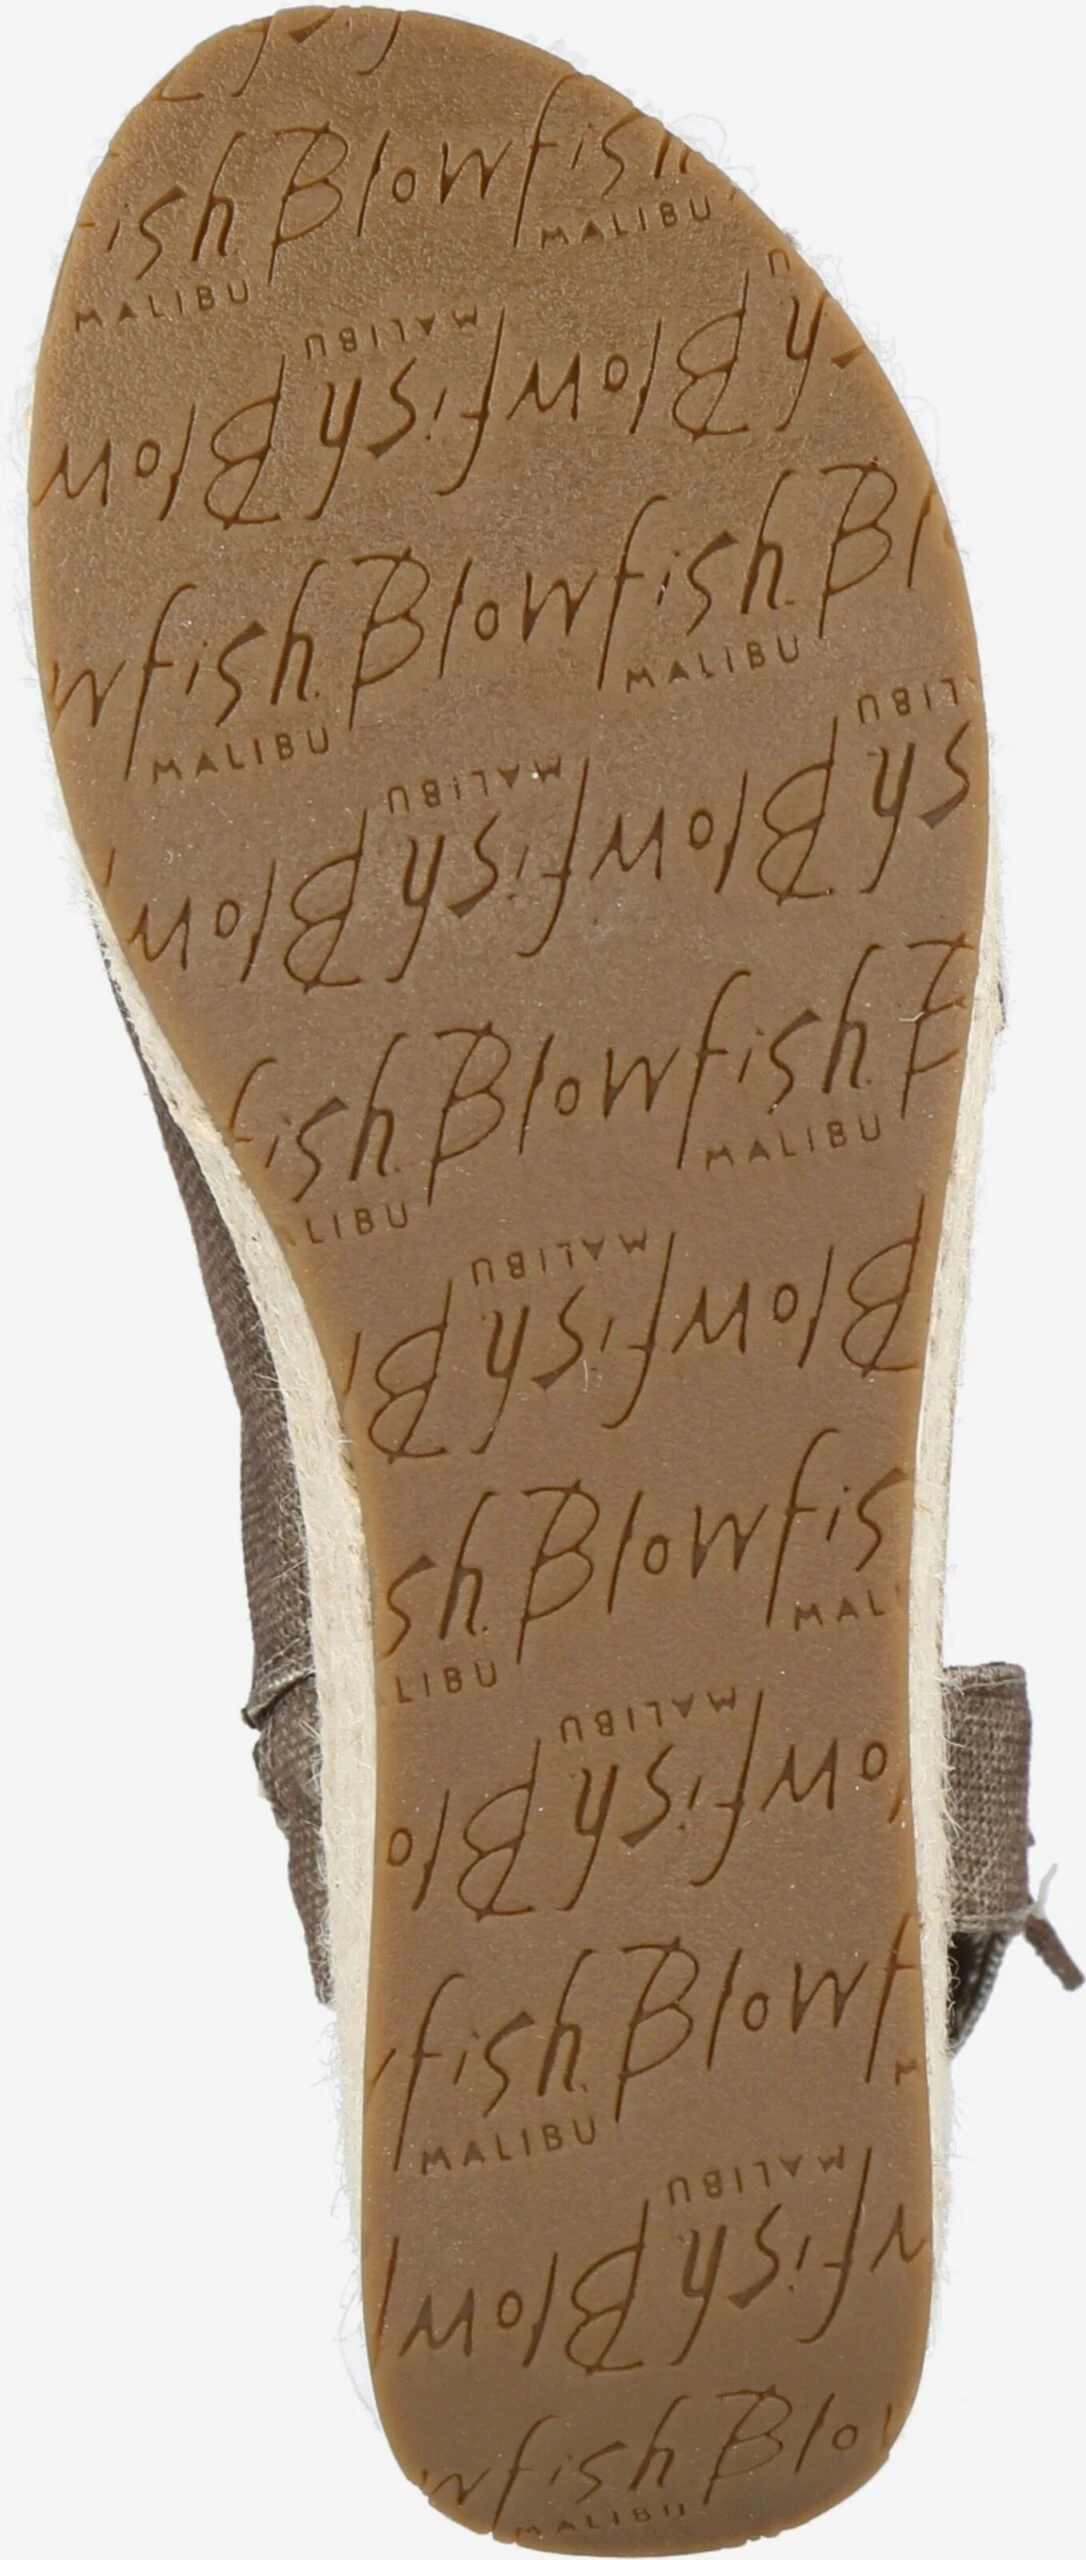 ish Blowfish
MALIBU MALIBU
MALIBU
Blowfish Blow
wfish Blowfish Bl
MALIBU MALIBU
LIBU MALIBU
sh Blowfish Blow
fish Blowfish B
LIBU MALIBU
MALIBU
Blowfish Bl
sh Blowfis
LIBU MAL
MALIBU
owfish Blo
fish Blowf
MALIBU M
MALIBU
wfish Blow
wfish Blo
MALIBU